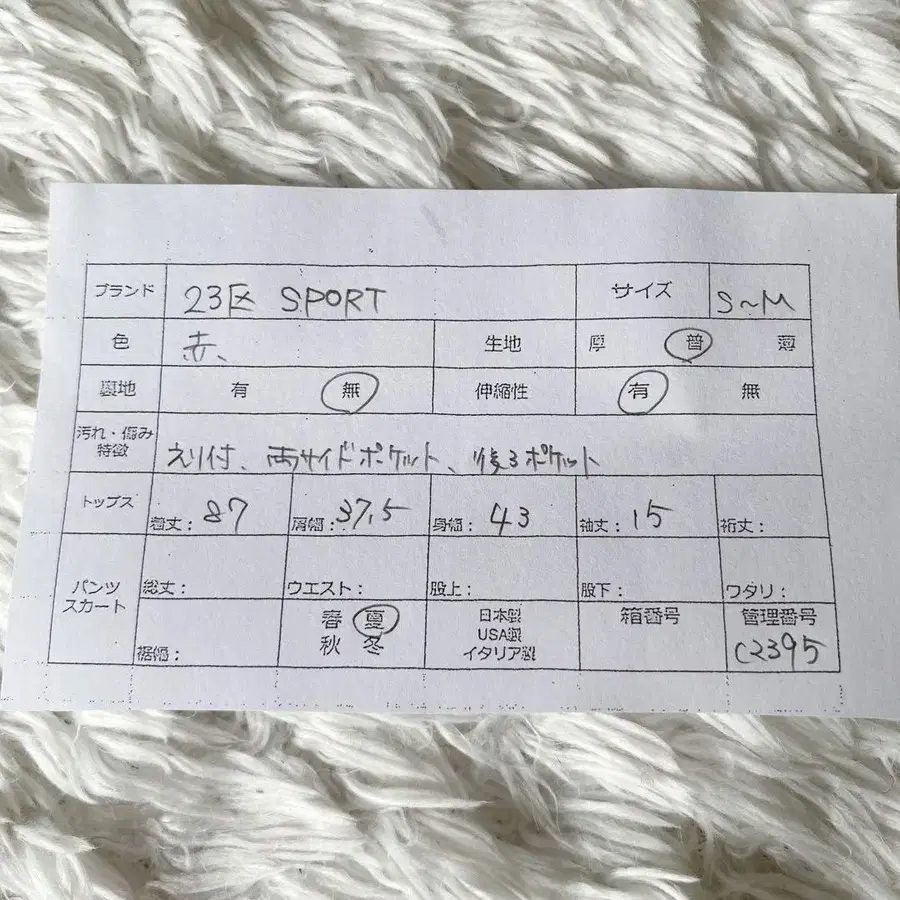 ブランド 23区 SPORT サイズ S~M
色 赤、 生地 厚 普 薄
裏地 有 無 伸縮性 有 無
汚れ・傷み
特徴 えり付、両サイドポケット、後ろポケット
トップス 着丈：87 肩幅：37.5 身幅：43 袖丈：15 裄丈：
パンツ
スカート 総丈： ウエスト： 股上： 股下： ワタリ：
裾幅： 春 夏
秋 冬
日本製
USA製
イタリア製
箱番号
管理番号
C2395